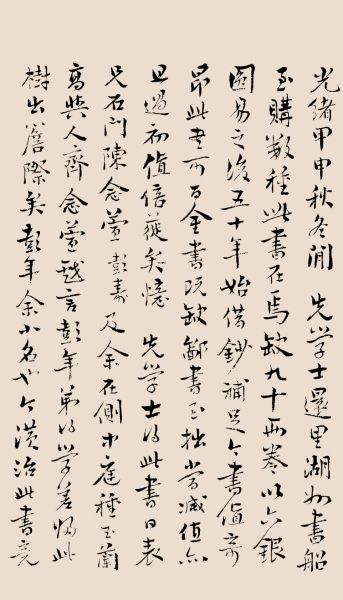 光緒甲申秋冬間　先學士還里湖州書船
至購數種此書在焉缺九十兩卷以六銀
圓易之後五十年始借鈔補足今書值奇
昂此書可百金書既缺鄙書至拙當減值亦
且過初值倍蓰矣憶　先學士得此書日表
兄石門陳念萱彭壽及余在側中庭種玉蘭
高與人齊念萱戲言彭年弟得學差歸此
樹出簷際矣彭年余小名也今潢治此書竟